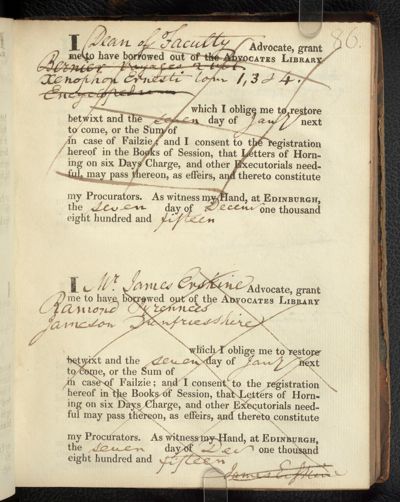 86.
I Dean of Faculty Advocate, grant
me to have borrowed out of the ADVOCATES LIBRARY
Bernier Voyages 2 vol
Xenophon Ernesti Tom 1, 3 & 4.
Encyclopedia
which I oblige me to restore
betwixt and the seven day of Jany next
to come, or the Sum of
in case of Failzie; and I consent to the registration
hereof in the Books of Session, that Letters of Horn-
ing on six Days Charge, and other Executorials need-
ful, may pass thereon, as effeirs, and thereto constitute
my Procurators. As witness my Hand, at EDINBURGH,
the seven day of Decem one thousand
eight hundred and fifteen
I Mr. James Erskine Advocate, grant
me to have borrowed out of the ADVOCATES LIBRARY
Ramond Pyrennees
Jameson Dumfriesshire
which I oblige me to restore
betwixt and the seven day of Jany next
to come, or the Sum of
in case of Failzie; and I consent to the registration
hereof in the Books of Session, that Letters of Horn-
ing on six Days Charge, and other Executorials need-
ful may pass thereon, as effeirs, and thereto constitute
my Procurators. As witness my Hand, at EDINBURGH,
the seven day of Dec one thousand
eight hundred and fifteen
James Erskine